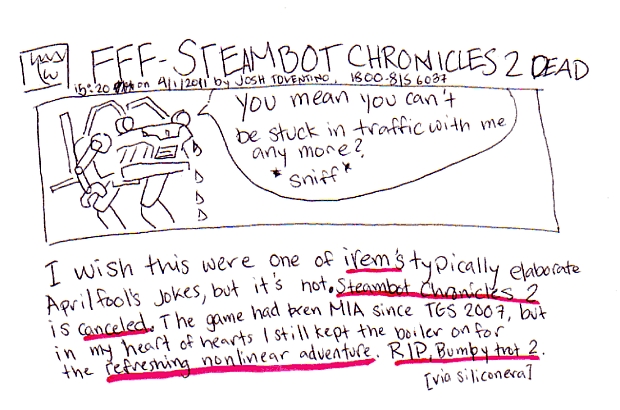 FFF-STEAMBOT CHRONICLES 2 DEAD
15:20 on 9/1/2011 by JOSH TOVENTINO, 1800-815 6037
You mean you can't
be stuck in traffic with me
any more?
*sniff*
I wish this were one of irem's typically elaborate
April fool's jokes, but it's not. Steambot Chronicles 2
is canceled. The game had been MIA since TGS 2007, but
in my heart of hearts I still kept the boiler on for
the refreshing nonlinear adventure. RIP, Bumpy trot 2.
[via siliconera]